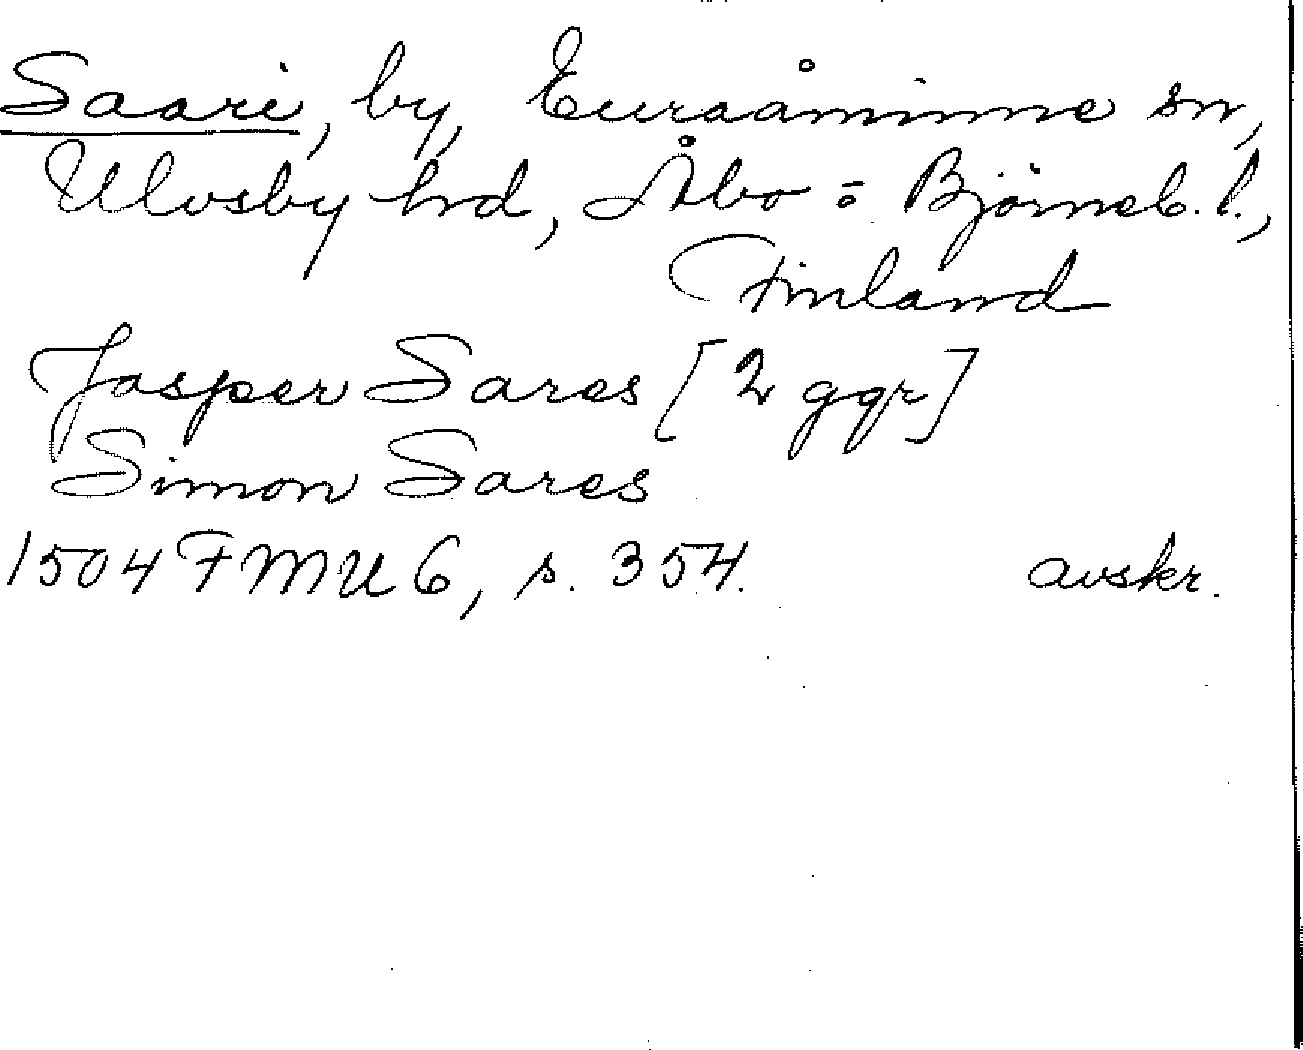 Saari, by, Euraåminne sn,
Ulvsby hrd, Åbo = Björneb. l.,
Finland
Jasper Sares [2 ggr]
Simon Sares
1504 FMU 6, s. 354. avskr.